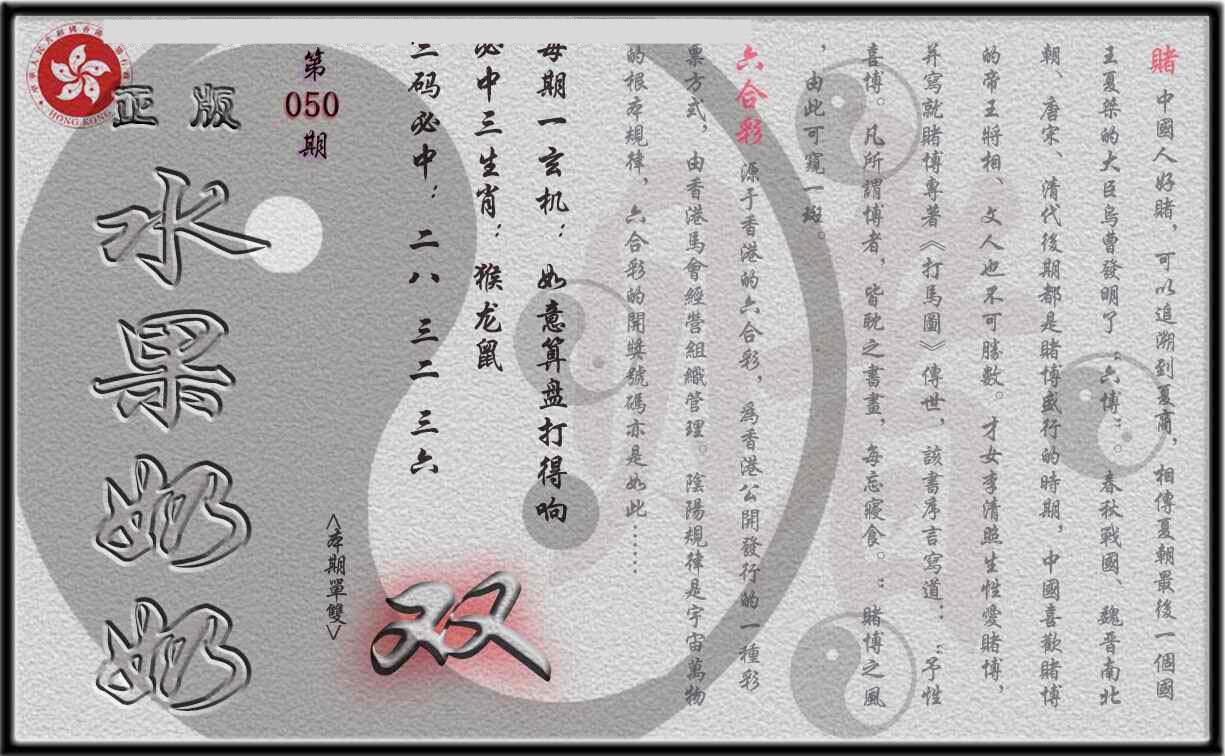 賭 中國人好賭，可以追溯到夏商，相傳夏朝最後一個國
王夏桀的大臣烏曹發明了“六博”。春秋戰國、魏晋南北
朝、唐宋、清代後期都是賭博盛行的時期，中國喜歡賭博
的帝王將相、文人也不可勝數。才女李清照生性愛賭博，
并寫就賭博專著《打馬圖》傳世，該書序言寫道：“予性
喜博。凡所謂博者，皆耽之晝書，每忘寢食。”賭博之風
，由此可窺一斑。
六合彩 源于香港的六合彩，為香港公開發行的一種彩
票方式，由香港馬會經營組織管理。陰陽規律是宇宙萬物
的根本規律，六合彩的開獎號碼亦是如此……
每期一玄机：如意算盘打得响
必中三生肖：猴龙鼠
三码必中：二八 三二 三六
双
<本期單雙>
第
050
期
正版
水果奶奶
HONG KONG